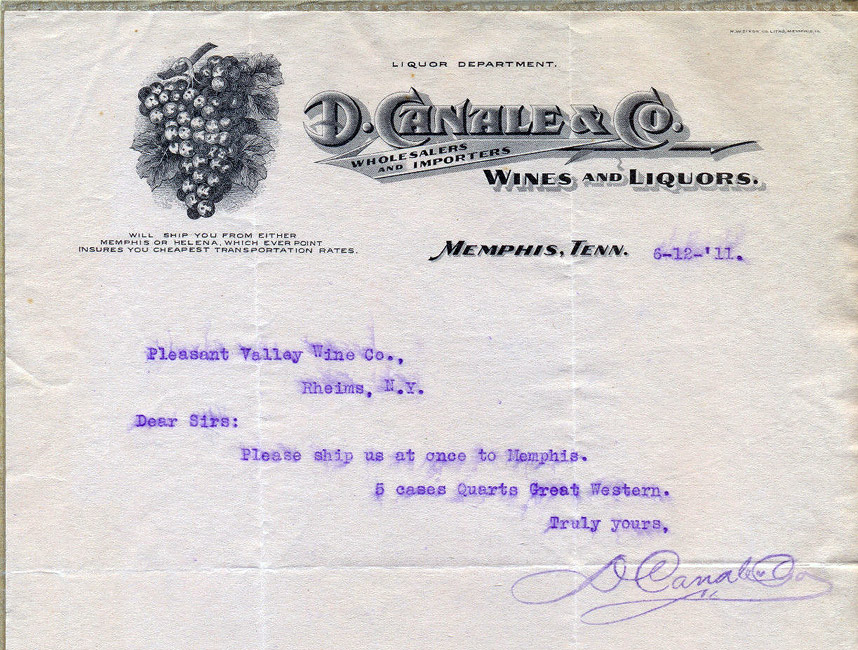 LIQUOR DEPARTMENT.
D. CANALE & CO.
WHOLESALERS
AND IMPORTERS
WINES AND LIQUORS.
WILL SHIP YOU FROM EITHER
MEMPHIS OR HELENA, WHICH EVER POINT
INSURES YOU CHEAPEST TRANSPORTATION RATES.
MEMPHIS, TENN. 6-12-'11.
Pleasant Valley Wine Co.,
Rheims, N.Y.
Dear Sirs:
Please ship us at once to Memphis.
5 cases Quarts Great Western.
Truly yours,
D Canale & Co